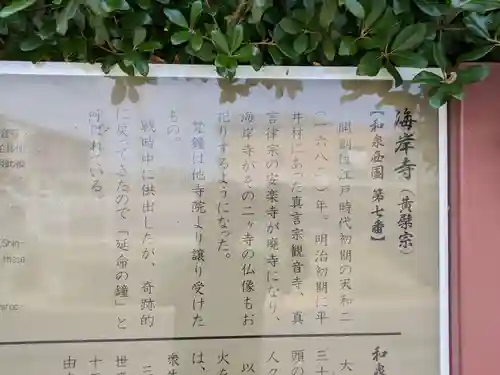 海岸寺（黄檗宗）
【和泉西国 第七番】
開創は江戸時代初期の天和二
（一六八二）年。明治初期に平
井村にあった真言宗観音寺、真
言律宗の安楽寺が廃寺になり、
海岸寺がその二ヶ寺の仏像もお
祀りするようになった。
梵鐘は他寺院より譲り受けた
もの。
戦時中に供出したが、奇跡的
に戻ってきたので「延命の鐘」と
呼ばれている。
和泉
大
三十
頭の
人々
以
火を
は、
衆生
三
世
十
由